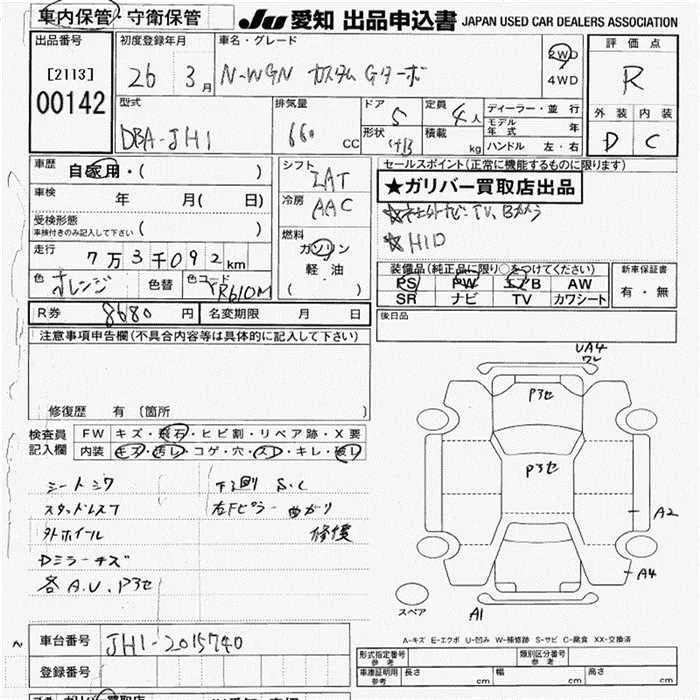 車内保管・守衛保管
JU 愛知 出品申込書 JAPAN USED CAR DEALERS ASSOCIATION
出品番号 初度登録年月 車名・グレード 評価点
[2113] 00142 26 3月 N-WGN カスタム Gターボ 2WD 4WD R
型式 排気量 ドア 定員 ディーラー・並行 外装 内装
DBA-JH1 660 CC 5 4人 モデル年式 年 D C
形状 積載 kg ハンドル 左・右
車歴 自家用・( ) シフト IAT セールスポイント(正常に機能するものに限ります)
車検 年 月( 日) 冷房 AAC ★ガリバー買取店出品
受検形態 車検付きのみ記入して下さい ( ) ☆社外ナビ TV、Bカメラ
走行 7万3千092km 燃料 ガソリン 軽油 ( ) ☆HID
色 オレンジ 色替 色コード YR610M 装備品(純正品に限り○をつけてください) 新車保証書
PS PW エアB AW 有・無
SR ナビ TV カワシート
R券 8680円 名変期限 月 日 後日品
注意事項申告欄(不具合内容等は具体的に記入して下さい)
修復歴 有 〔箇所 〕
検査員記入欄 FW キズ・飛石・ヒビ割・リペア跡・X要
内装 キズ・汚レ・コゲ・穴・スレ・キレ・破レ
シートシワ 下廻り S.C
スタッドレス 右Fピラー曲がり
外ホイール 修復
Dミラーキズ
各A.U、Pヌセ
UA4
Pヌセ
Pヌセ
A2
A4
A1
スペア
A-キズ E-エクボ U-凹み W-補修跡 S-サビ C-腐食 XX-交換済
車台番号 JH1-2015740
形式指定番号 参考 類別区分番号 参考
登録番号
車庫証明用 参考 長さ cm 幅 cm 高さ cm